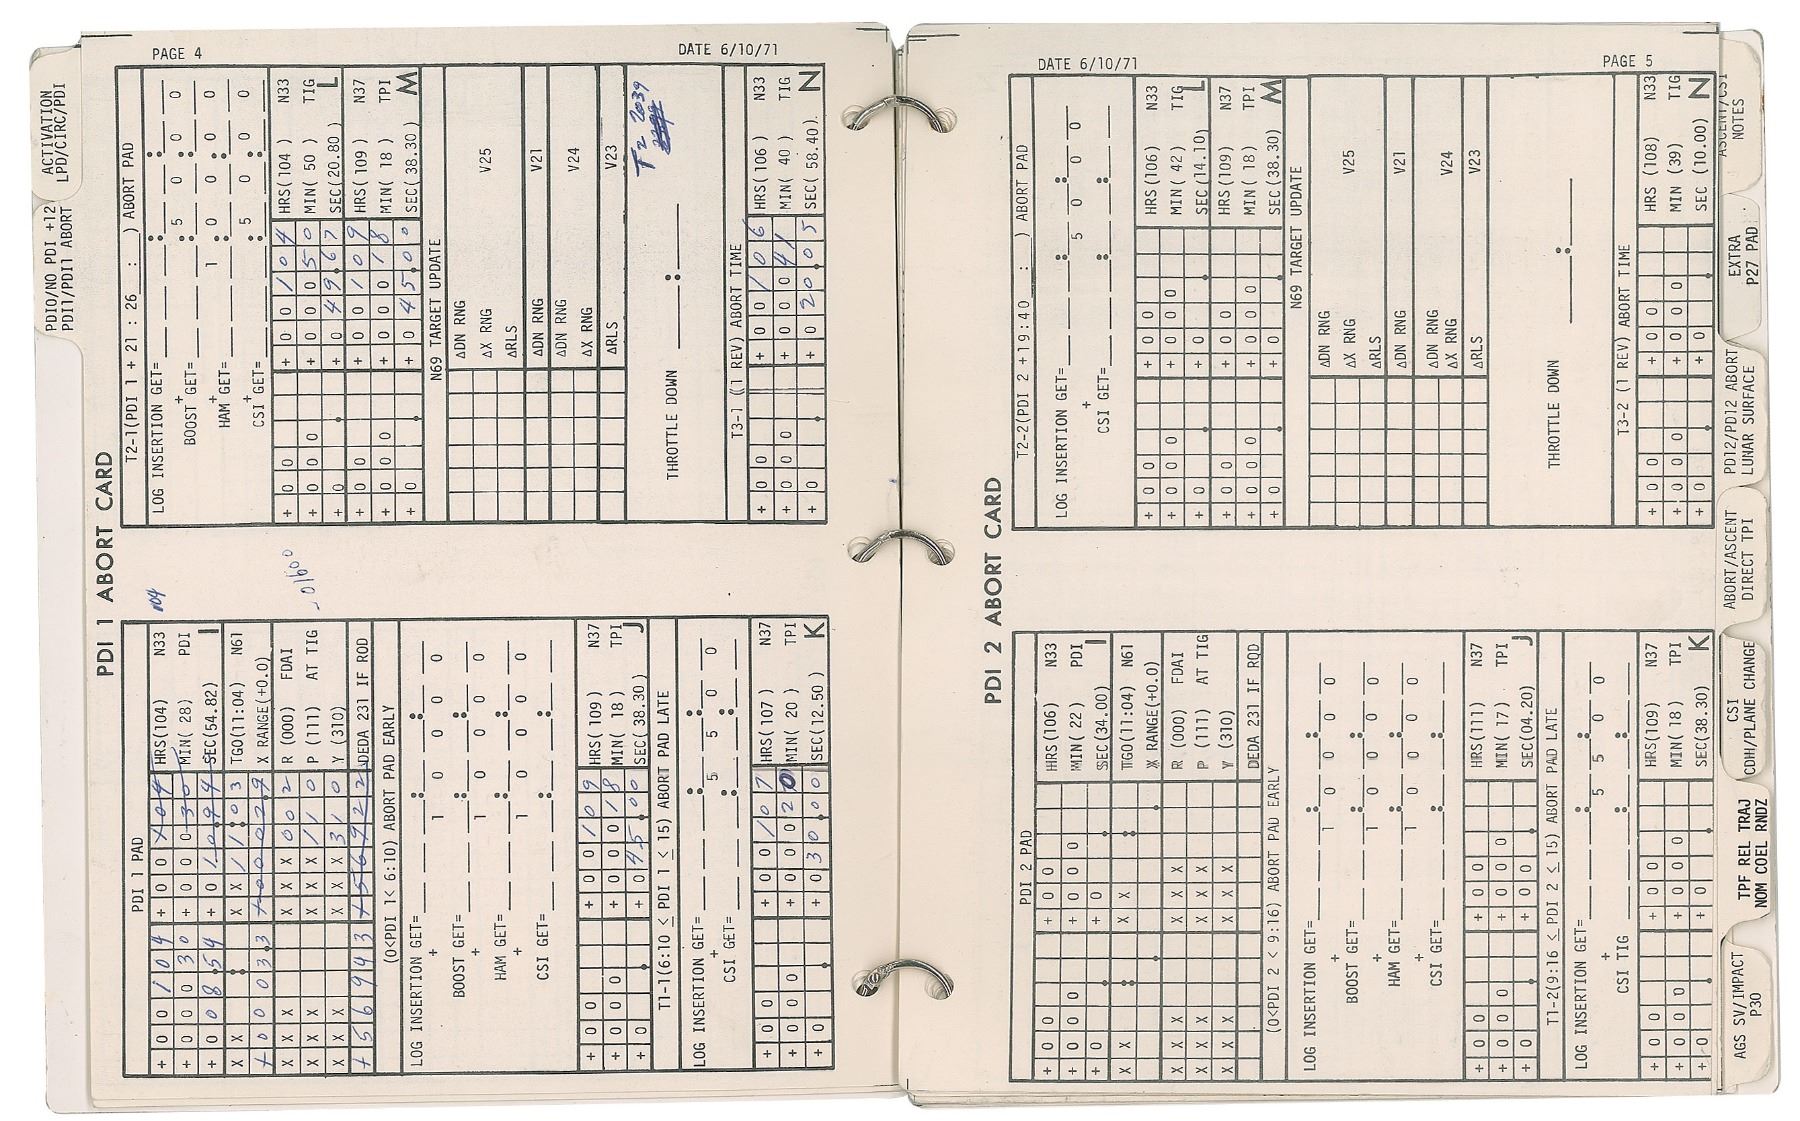 PAGE 4
DATE 6/10/71
PDI 1 ABORT CARD
PDI 1 PAD
+ 0 0 1 0 4 + 0 0 1 0 4 HRS(104) N33 104
+ 0 0 0 3 0 + 0 0 0 3 0 MIN( 28) PDI
+ 0 0 8.5 4 + 0 1 0.9 4 SEC(54.82) I
X X : X X 1 1:0 3 TGO(11:04) N61
+ 0 0 0 3.3 + 0 0 0 2.9 X RANGE(+0.0)
X X X X X X 0 0 2 R (000) FDAI
X X X X X X 1 1 0 P (111) AT TIG
X X X X X X 3 1 0 Y (310)
+ 5 6 9 4 3 + 5 6 9 2 2 DEDA 231 IF RQD
(0<PDI 1< 6:10) ABORT PAD EARLY
LOG INSERTION GET= ___:___:___
+ 1 : 0 0 : 0 0
BOOST GET= ___:___:___
+ 1 : 0 0 : 0 0
HAM GET= ___:___:___
+ 1 : 0 0 : 0 0
CSI GET= ___:___:___
+ 0 0 + 0 0 1 0 9 HRS( 109) N37
+ 0 0 0 + 0 0 0 1 8 MIN( 18) TPI
+ 0 . + 0 4 5.0 0 SEC( 38.30) J
T1-1(6:10 ≤ PDI 1 ≤ 15) ABORT PAD LATE
LOG INSERTION GET= ___:___:___
+ : 5 5 : 0 0
CSI GET= ___:___:___
+ 0 0 + 0 0 1 0 7 HRS(107) N37
+ 0 0 0 + 0 0 0 2 0 MIN( 20 ) TPI
+ 0 . + 0 3 0.0 0 SEC(12.50) K
T2-1(PDI 1 + 21 : 26 ___ : ) ABORT PAD
LOG INSERTION GET= ___:___:___
+ : 5 0 : 0 0
BOOST GET= ___:___:___
+ 1 : 0 0 : 0 0
HAM GET= ___:___:___
+ : 5 0 : 0 0
CSI GET= ___:___:___
+ 0 0 + 0 0 1 0 4 HRS(104 ) N33
+ 0 0 0 + 0 0 0 5 0 MIN( 50 ) TIG
+ 0 . + 0 4 9.6 7 SEC(20.80) L
+ 0 0 + 0 0 1 0 9 HRS(109 ) N37
+ 0 0 0 + 0 0 0 1 8 MIN( 18 ) TPI
+ 0 . + 0 4 5.0 0 SEC( 38.30) M
N69 TARGET UPDATE
ΔDN RNG
ΔX RNG V25
ΔRLS
ΔDN RNG V21
ΔDN RNG
ΔX RNG V24
ΔRLS V23
T2 2039
THROTTLE DOWN ___:___
T3-1 ((1 REV) ABORT TIME
+ 0 0 + 0 0 1 0 6 HRS(106) N33
+ 0 0 0 + 0 0 0 4 1 MIN( 40) TIG
+ 0 . + 0 2 0.0 5 SEC(58.40) N
DATE 6/10/71
PAGE 5
PDI 2 ABORT CARD
PDI 2 PAD
+ 0 0 + 0 0 HRS(106) N33
+ 0 0 0 + 0 0 0 MIN (22 ) PDI
+ 0 . + 0 . SEC(34.00) I
X X : X X : TGO(11:04) N61
. . X RANGE(+0.0)
X X X X X X R (000) FDAI
X X X X X X P (111) AT TIG
X X X X X X Y (310)
DEDA 231 IF RQD
(0<PDI 2 < 9:16) ABORT PAD EARLY
LOG INSERTION GET= ___:___:___
+ 1 : 0 0 : 0 0
BOOST GET= ___:___:___
+ 1 : 0 0 : 0 0
HAM GET= ___:___:___
+ 1 : 0 0 : 0 0
CSI GET= ___:___:___
+ 0 0 + 0 0 HRS(111) N37
+ 0 0 0 + 0 0 0 MIN( 17) TPI
+ 0 . + 0 . SEC(04.20) J
T1-2(9:16 ≤ PDI 2 ≤ 15) ABORT PAD LATE
LOG INSERTION GET= ___:___:___
+ : 5 5 : 0 0
CSI TIG ___:___:___
+ 0 0 + 0 0 HRS(109) N37
+ 0 0 0 + 0 0 0 MIN( 18 ) TPI
+ 0 . + 0 . SEC(38.30) K
T2-2(PDI 2 +19:40 ___ : ) ABORT PAD
LOG INSERTION GET= ___:___:___
+ : 5 0 : 0 0
CSI GET= ___:___:___
+ 0 0 + 0 0 HRS(106) N33
+ 0 0 0 + 0 0 0 MIN( 42) TIG
+ 0 . + 0 . SEC(14.10) L
+ 0 0 + 0 0 HRS(109) N37
+ 0 0 0 + 0 0 0 MIN( 18) TPI
+ 0 . + 0 . SEC(38.30) M
N69 TARGET UPDATE
ΔDN RNG
ΔX RNG V25
ΔRLS
ΔDN RNG V21
ΔDN RNG
ΔX RNG V24
ΔRLS V23
THROTTLE DOWN ___:___
T3-2 (1 REV) ABORT TIME
+ 0 0 + 0 0 HRS (108) N33
+ 0 0 0 + 0 0 0 MIN (39) TIG
+ 0 . + 0 . SEC (10.00) N
ACTIVATION
LPD/CIRC/PDI
PDIO/NO PDI +12
PDI1/PDI1 ABORT
NOTES
EXTRA
P27 PAD
PDI2/PDI2 ABORT
LUNAR SURFACE
ABORT/ASCENT
DIRECT TPI
CSI
CDH/PLANE CHANGE
TPF REL TRAJ
NOM COEL RNDZ
AGS SV/IMPACT
P30